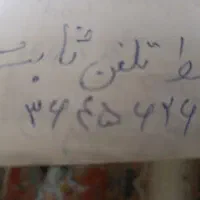 ط تلفن ثاب
۳۶۴۵۶۲۶